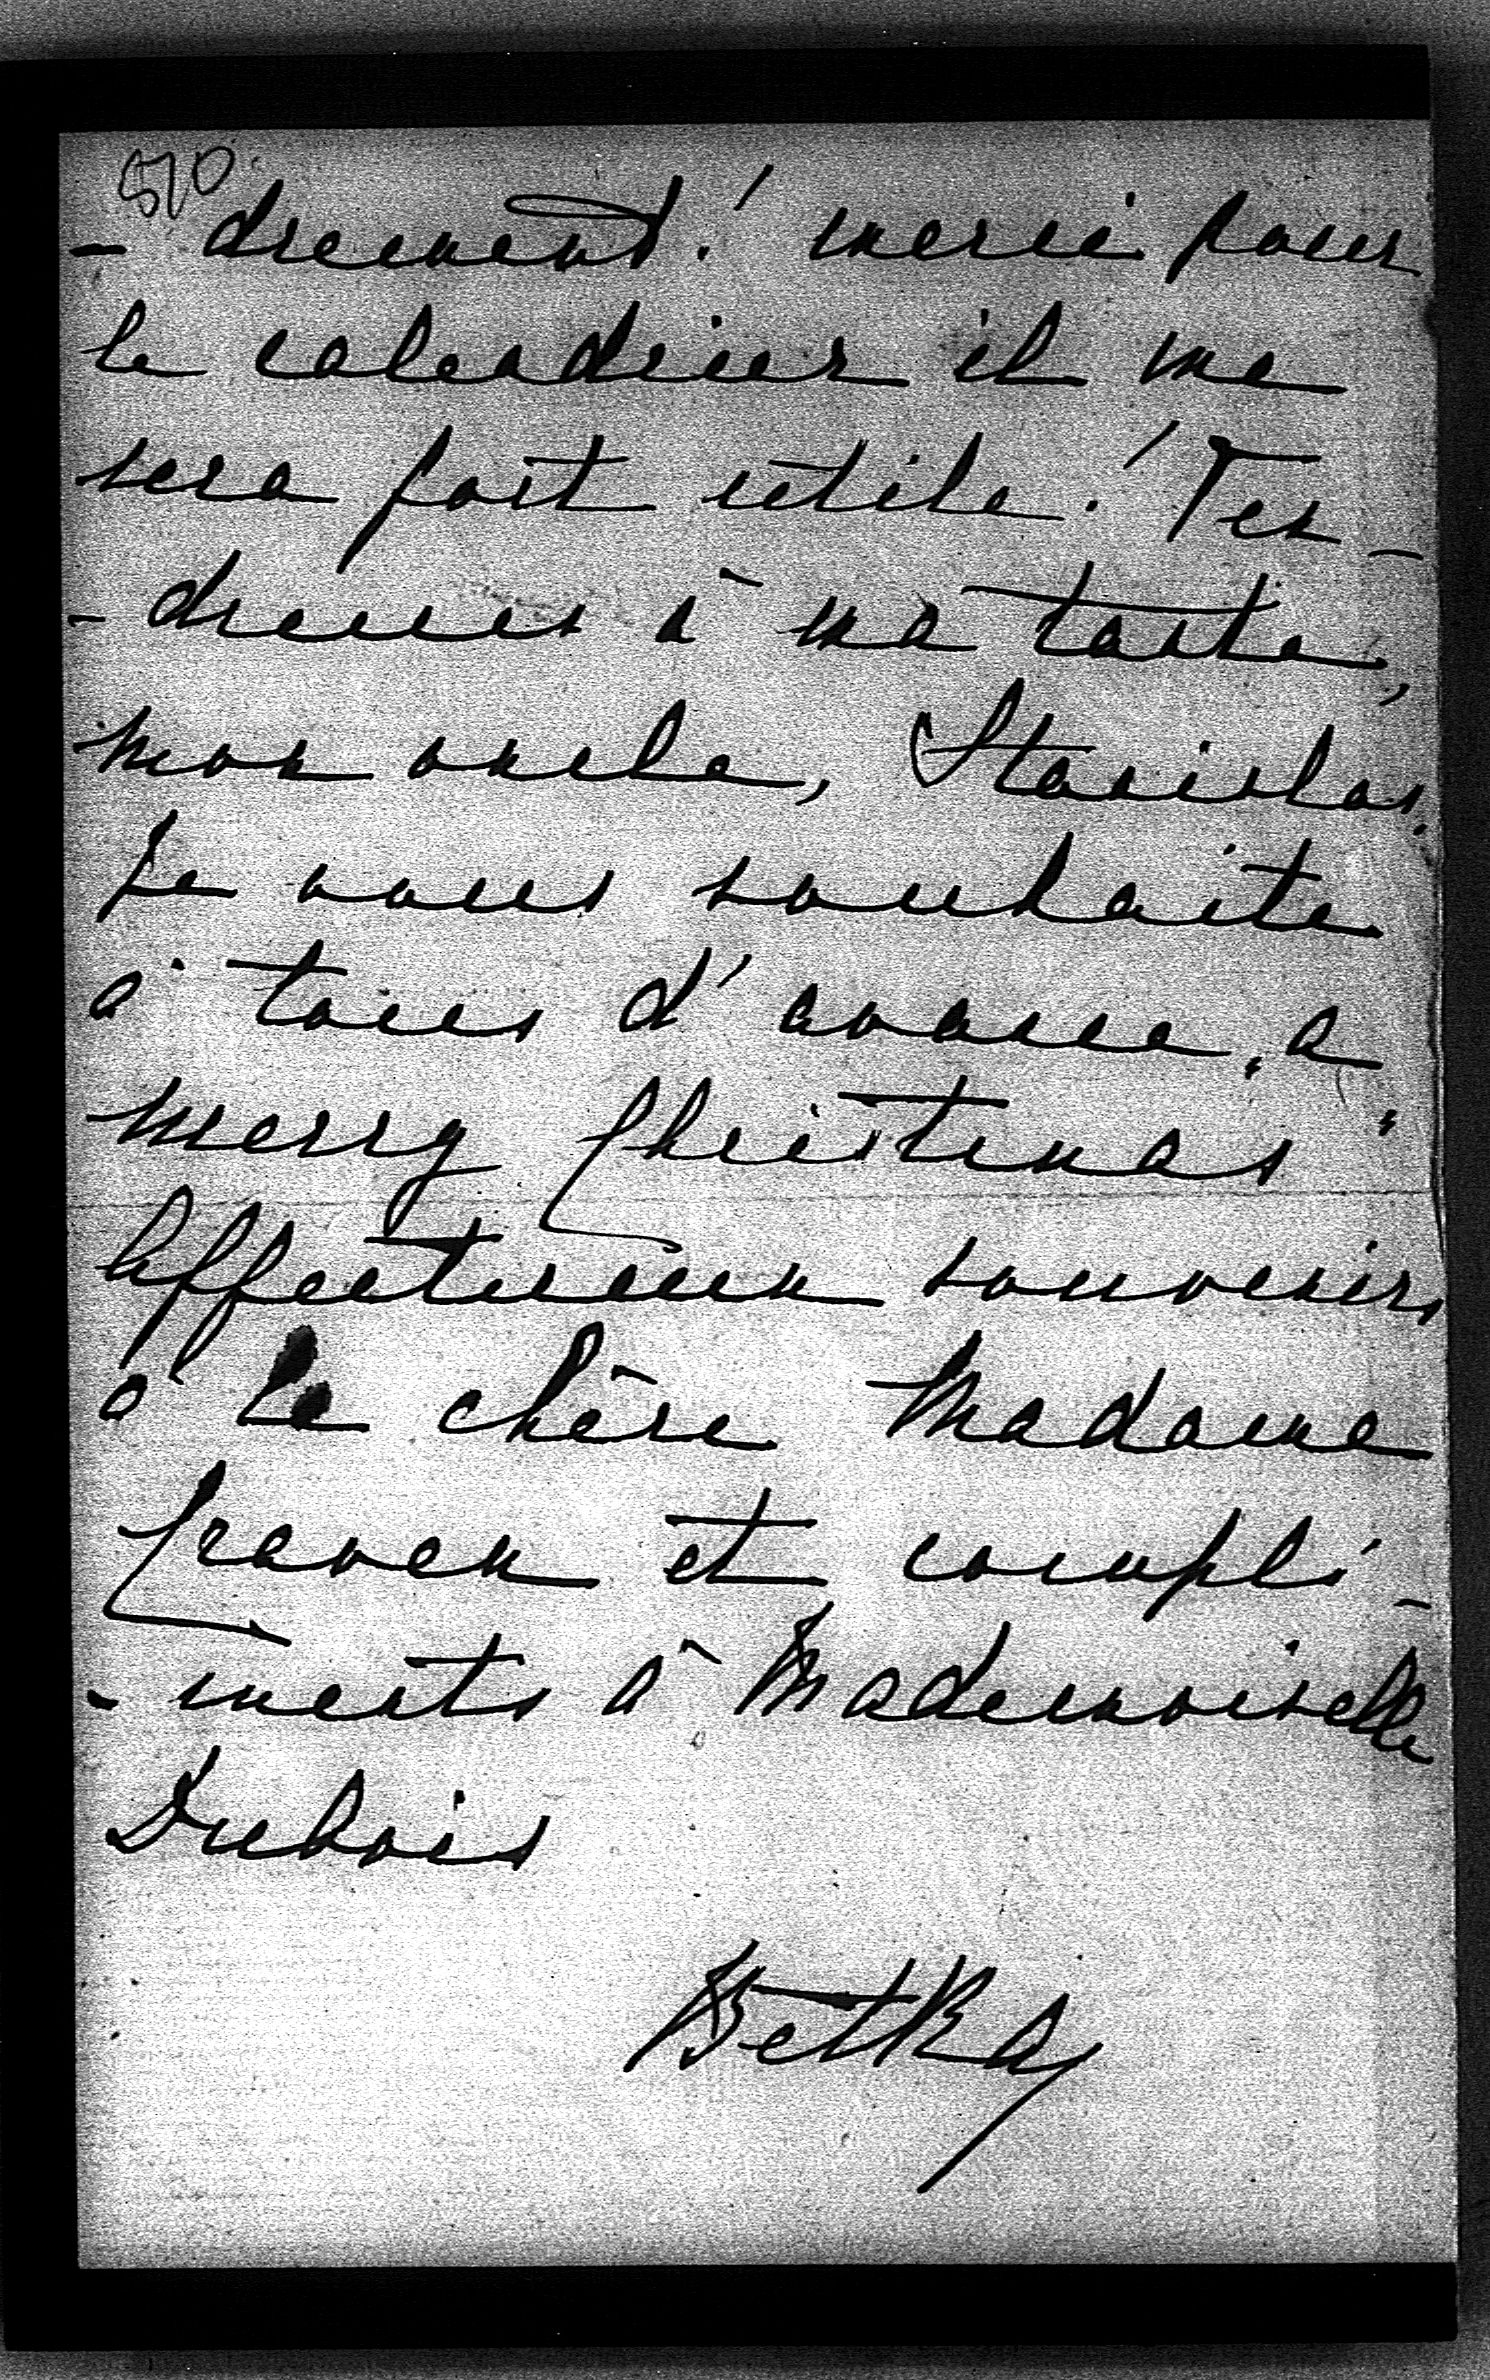 510
- drement ! merci pour
le calendrier il me
sera fort utile ! Ten-
- dresses à ma tante,
mon oncle, Stanislas.
Je vous souhaite
à tous d'avance "a
merry Christmas"
Affectueux souvenirs
à la chère Madame
Franck et compli-
- ments à Mademoiselle
Dubois
Betka